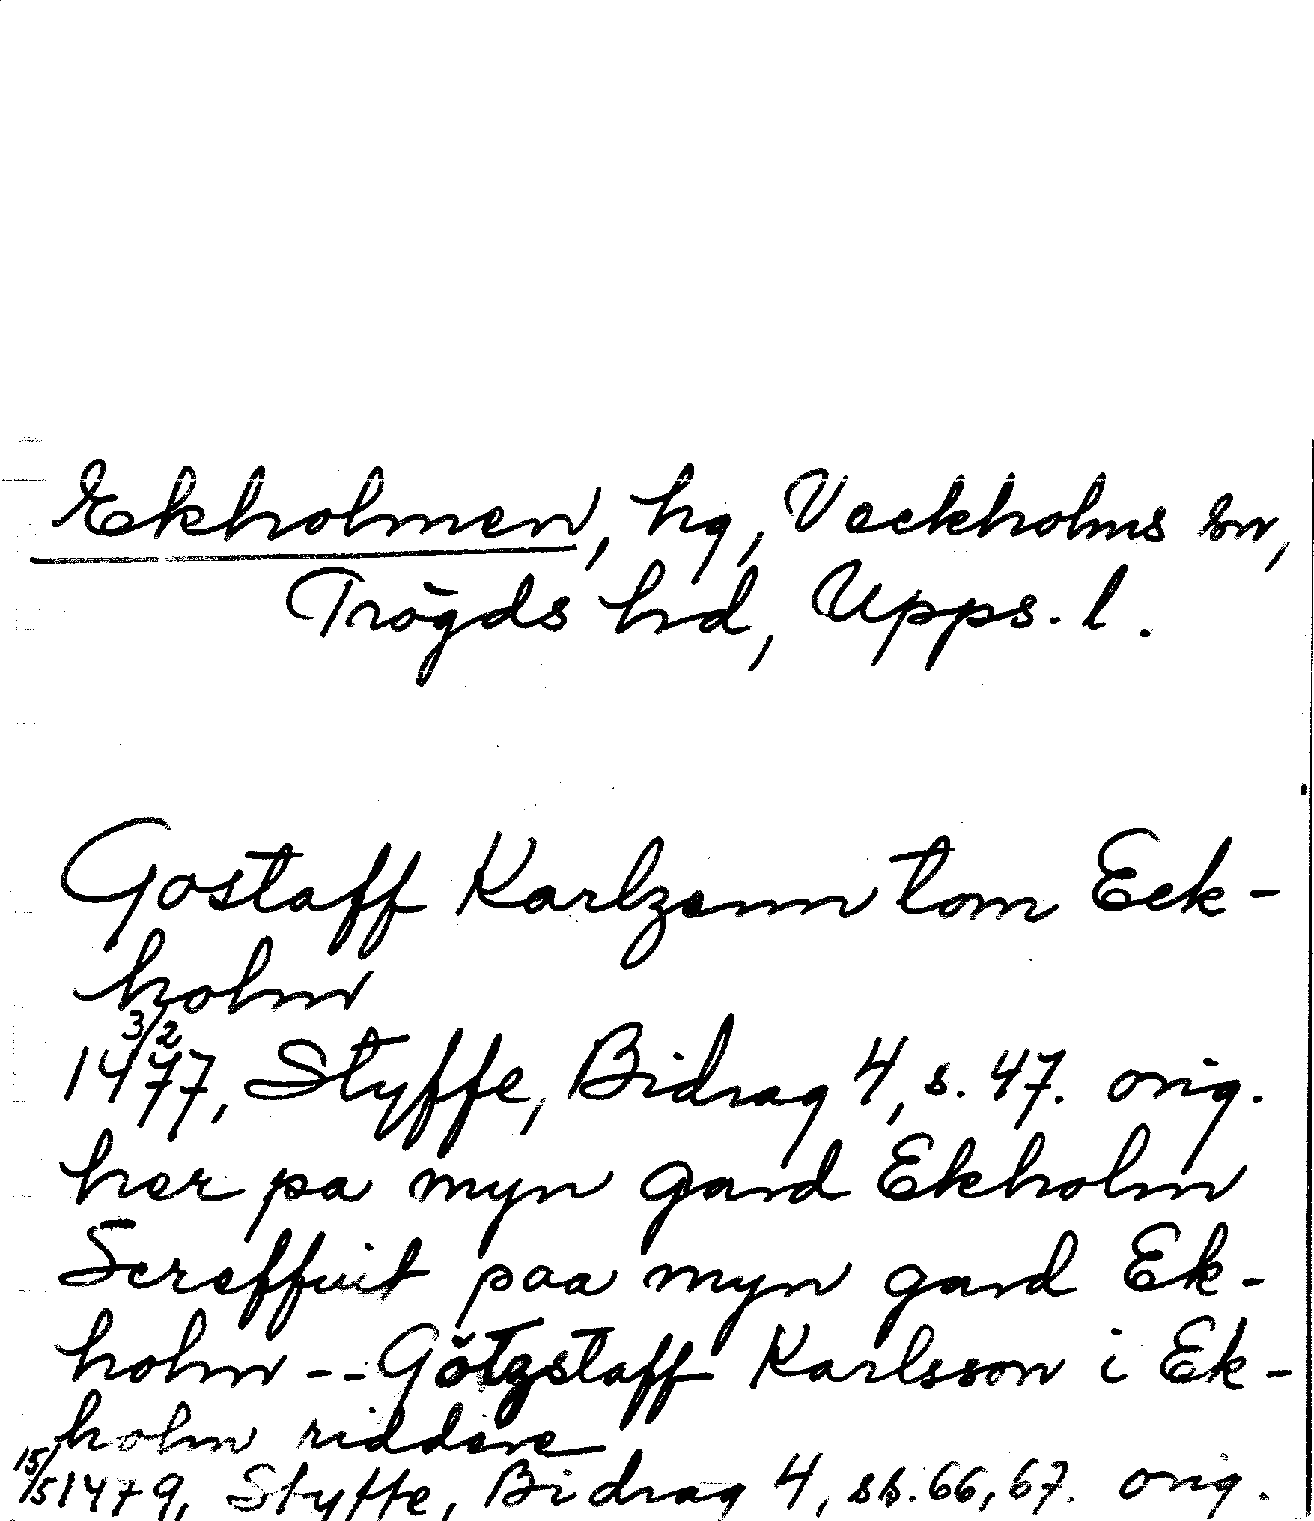 Ekholmen, hg, Veckholms sn,
Trögds hd, Upps. l.
Gostaff Karlzsonn tom Eek-
holm
3/2
1477, Styffe, Bidrag 4, s. 47. orig.
her pa myn gard Ekholm
Screffuit paa myn gard Ek-
holm -- Götzstaff Karlsson i Ek-
holm riddere
15/5 1479, Styffe, Bidrag 4, ss. 66, 67. orig.